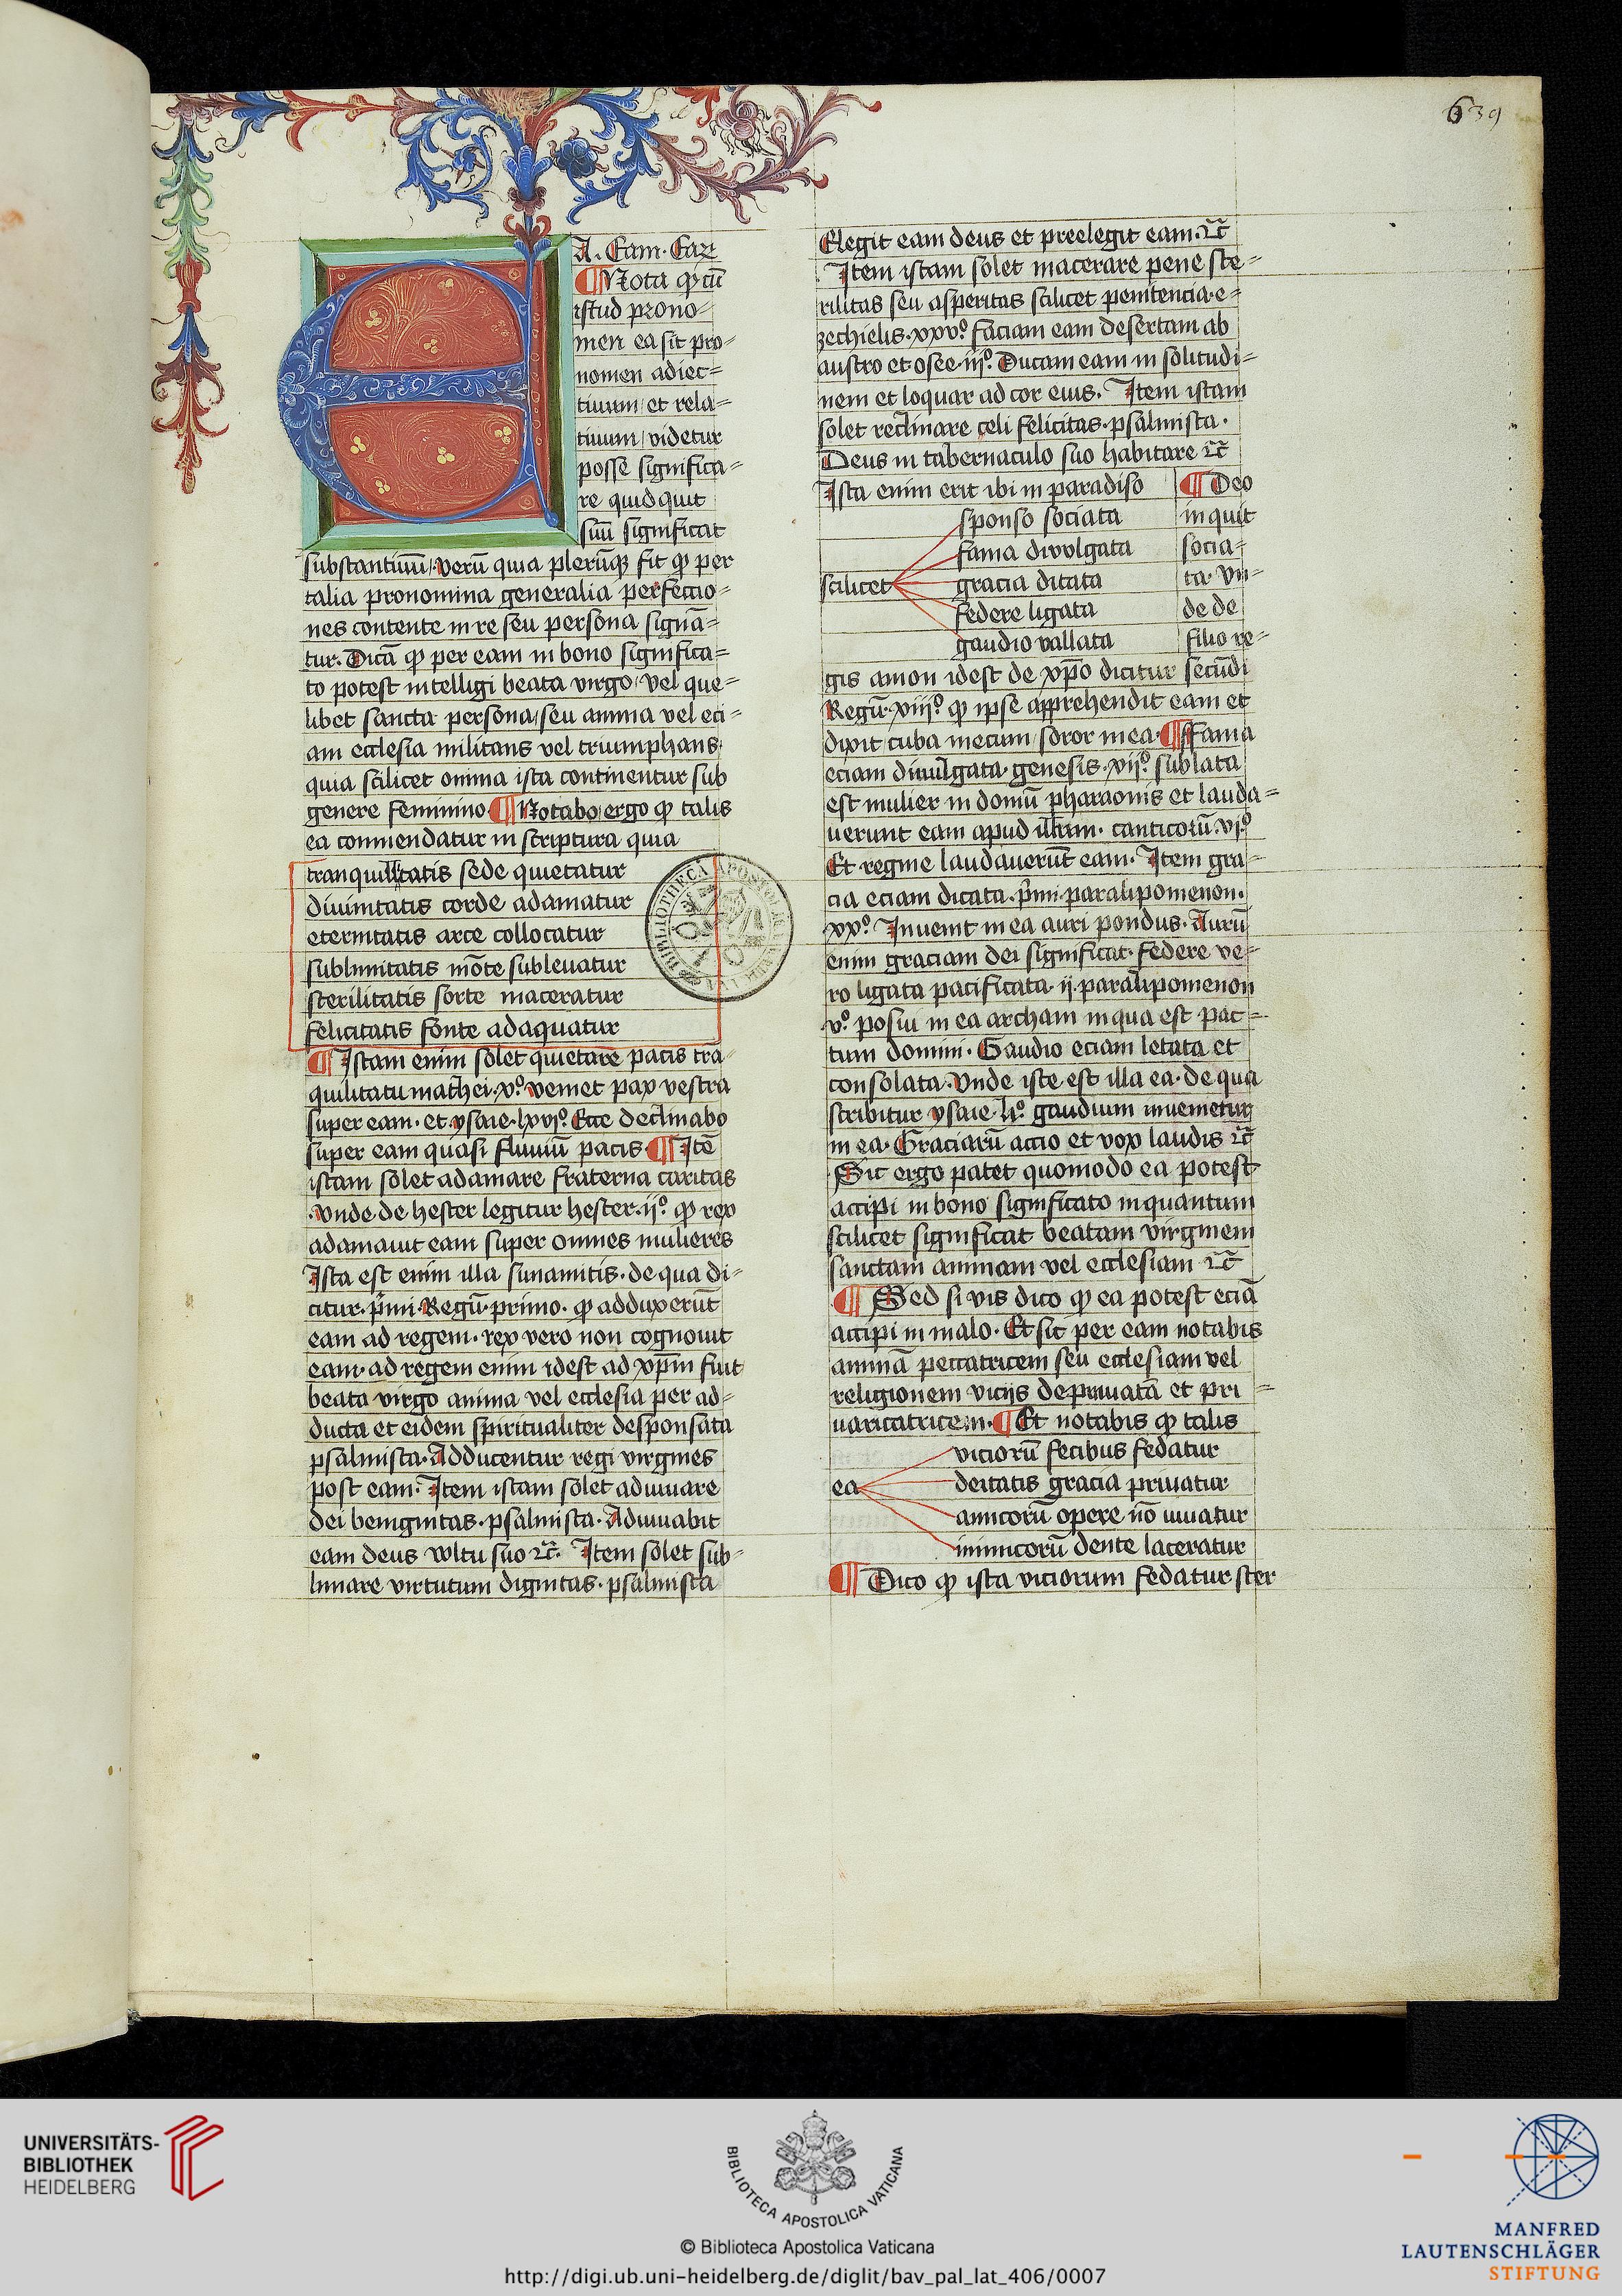 639
EA. Eam. Eaꝝ
¶ Nota ꝙ cū
istud prono-
men ea sit pro-
nomen adiec-
tiuum et rela-
tiuum / videtur
posse significa-
re quid quit
suū significat
substantiuū / verū quia plerūqꝫ fit ꝙ per
talia pronomina generalia perfectio-
nes contente in re seu persona signā-
tur. Dicā ꝙ per eam in bono significa-
to potest intelligi beata virgo / vel que-
libet sancta persona / seu anima vel eci-
am ecclesia militans vel triumphans
quia scilicet omnia ista continentur sub
genere feminino ¶ Notabo ergo ꝙ talis
ea commendatur in scriptura quia
tranquillitatis sede quietatur
diuinitatis corde adamatur
eternitatis arce collocatur
sublimitatis mōte subleuatur
sterilitatis sorte maceratur
felicitatis fonte adaquatur
¶ Istam enim solet quietare pacis tra-
quilitatu mathei. xº. veniet pax vestra
super eam. et ysaie. lxvjº. Ecce declinabo
super eam quasi fluuiū pacis. ¶ Itē
istam solet adamare fraterna caritas
.vnde de hester legitur hester. ijº. ꝙ rex
adamauit eam super omnes mulieres
Ista est enim illa sunamitis. de qua di-
citur. p̄mi. Regū. primo. ꝙ adduxerūt
eam ad regem. rex vero non cognouit
eam. ad regem enim idest ad xp̄m fuit
beata virgo anima vel ecclesia per ad-
ducta et eidem spiritualiter desponsata
psalmista. Adducentur regi virgines
post eam. Item istam solet adiuuare
dei benignitas. psalmista. Adiuuabit
eam deus vvltu suo ⁊c̄. Item solet sub-
limare virtutum dignitas. psalmista
Elegit eam deus et preelegit eam. ⁊c̄
Item istam solet macerare pene ste-
rilitas seu asperitas scilicet penitencia. e-
zechielis. xxvº. faciam eam desertam ab
austro et osee. ijº. Ducam eam in solitudi-
nem et loquar ad cor eius. Item istam
solet reclinare celi felicitas. psalmista.
Deus in tabernaculo suo habitare ⁊c̄
Ista enim erit ibi in paradiso
scilicet
sponso sociata
fama divvlgata
gracia ditata
federe ligata
gaudio vallata
¶ Deo
inquit
socia-
ta. vn-
de de
filio re-
gis amon idest de xp̄o dicitur secūdi
Regū. xiijº. ꝙ ipse apprehendit eam et
dixit / cuba mecum / soror mea. ¶ Fama
eciam diuulgata. genesis. xijº. sublata
est mulier in domū pharaonis et lauda-
uerunt eam apud illam. canticorū. vjº.
Et regine laudauerūt eam. Item gra-
cia eciam dicata. p̄mi. paralipomenon.
xxº. Inuenit in ea auri pondus. Aurū
enim graciam dei significat. federe ve-
ro ligata pacificata. ij. paralipomenon
vº. posui in ea archam in qua est pac-
tum domini. Gaudio eciam letata et
consolata. vnde iste est illa ea. de qua
scribitur ysaie. ljº. gaudium inuenietur
in ea. Graciarū actio et vox laudis ⁊c̄
Sic ergo patet quomodo ea potest
accipi in bono significato inquantum
scilicet significat beatam virginem
sanctam animam vel ecclesiam ⁊c̄
¶ Sed si vis dico ꝙ ea potest eciā
accipi in malo. Et sic per eam notabis
animā peccatricem seu ecclesiam vel
religionem vicijs depriuatā et pri-
uaricatricem. ¶ Et notabis ꝙ talis
ea
viciorū fecibus fedatur
deitatis gracia priuatur
amicorū opere nō iuuatur
inimicorū dente laceratur
¶ Dico ꝙ ista viciorum fedatur ster
UNIVERSITÄTS-
BIBLIOTHEK
HEIDELBERG
BIBLIOTECA APOSTOLICA VATICANA
© Biblioteca Apostolica Vaticana
http://digi.ub.uni-heidelberg.de/diglit/bav_pal_lat_406/0007
MANFRED
LAUTENSCHLÄGER
STIFTUNG